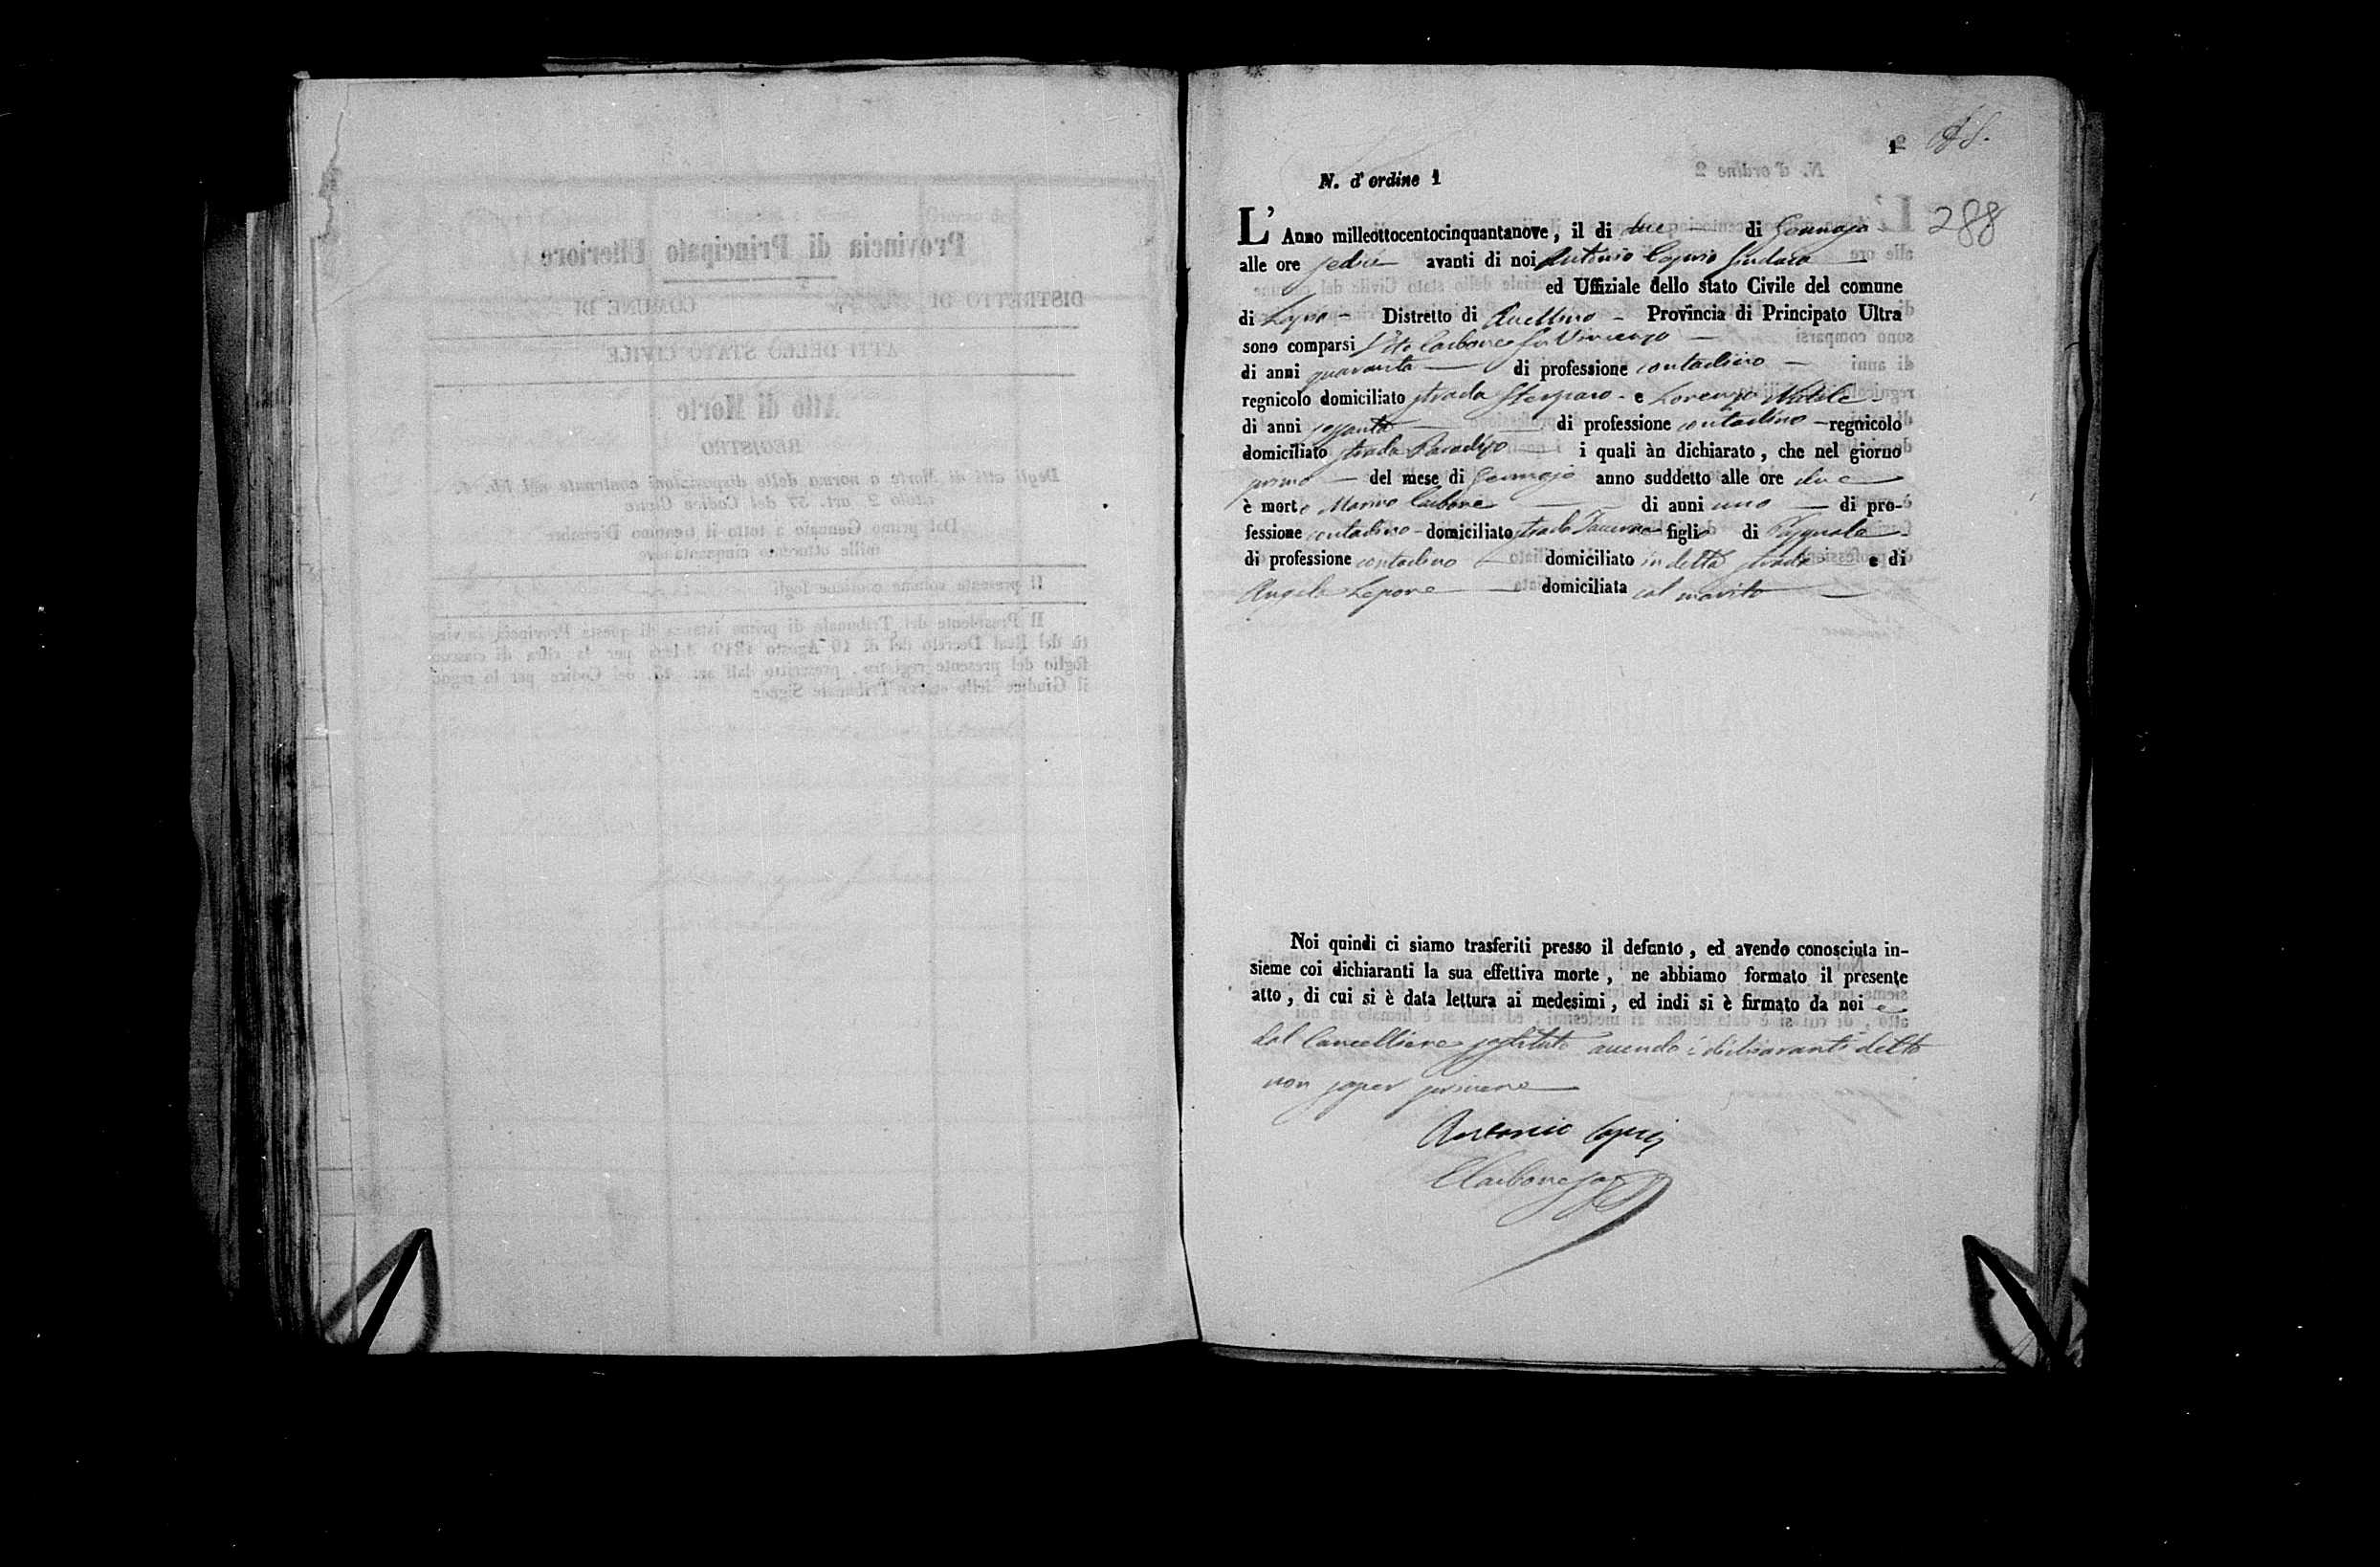 1
288
N. d'ordine 1
L' Anno milleottocentocinquantanove, il di due di Gennajo
alle ore sedici avanti di noi Antonio Caprio Sindaco
ed Uffiziale dello stato Civile del comune
di Lapio Distretto di Avellino Provincia di Principato Ultra
sono comparsi Vito Carbone fu Vincenzo
di anni quaranta di professione contadino
regnicolo domiciliato strada e Lorenzo
di anni sessanta di professione contadino regnicolo
domiciliato strada Paradiso i quali àn dichiarato, che nel giorno
primo del mese di Gennajo anno suddetto alle ore due
è morto Marino Carbone di anni uno di pro-
fessione contadino domiciliato strada Taverna figlio di Pasquale
di professione contadino domiciliato in detta strada e di
Angela Lepore domiciliata col marito
Noi quindi ci siamo trasferiti presso il defunto, ed avendo conosciuta in-
sieme coi dichiaranti la sua effettiva morte, ne abbiamo formato il presente
atto, di cui si è data lettura ai medesimi, ed indi si è firmato da noi e
dal Cancelliere sostituto avendo i dichiaranti detto
non saper scrivere
Antonio Caprio
Carbone
Provincia di Principato Ulteriore
DISTRETTO DI COMUNE DI
ATTI DELLO STATO CIVILE
Atto di Morte
REGISTRO
Degli atti di Morte a norma delle disposizioni contenute nel lib. 1.
titolo 2 art. 57 del Codice Civile
Dal primo Gennajo a tutto il trentuno Dicembre
mille ottocento cinquantanove
Il presente volume contiene fogli